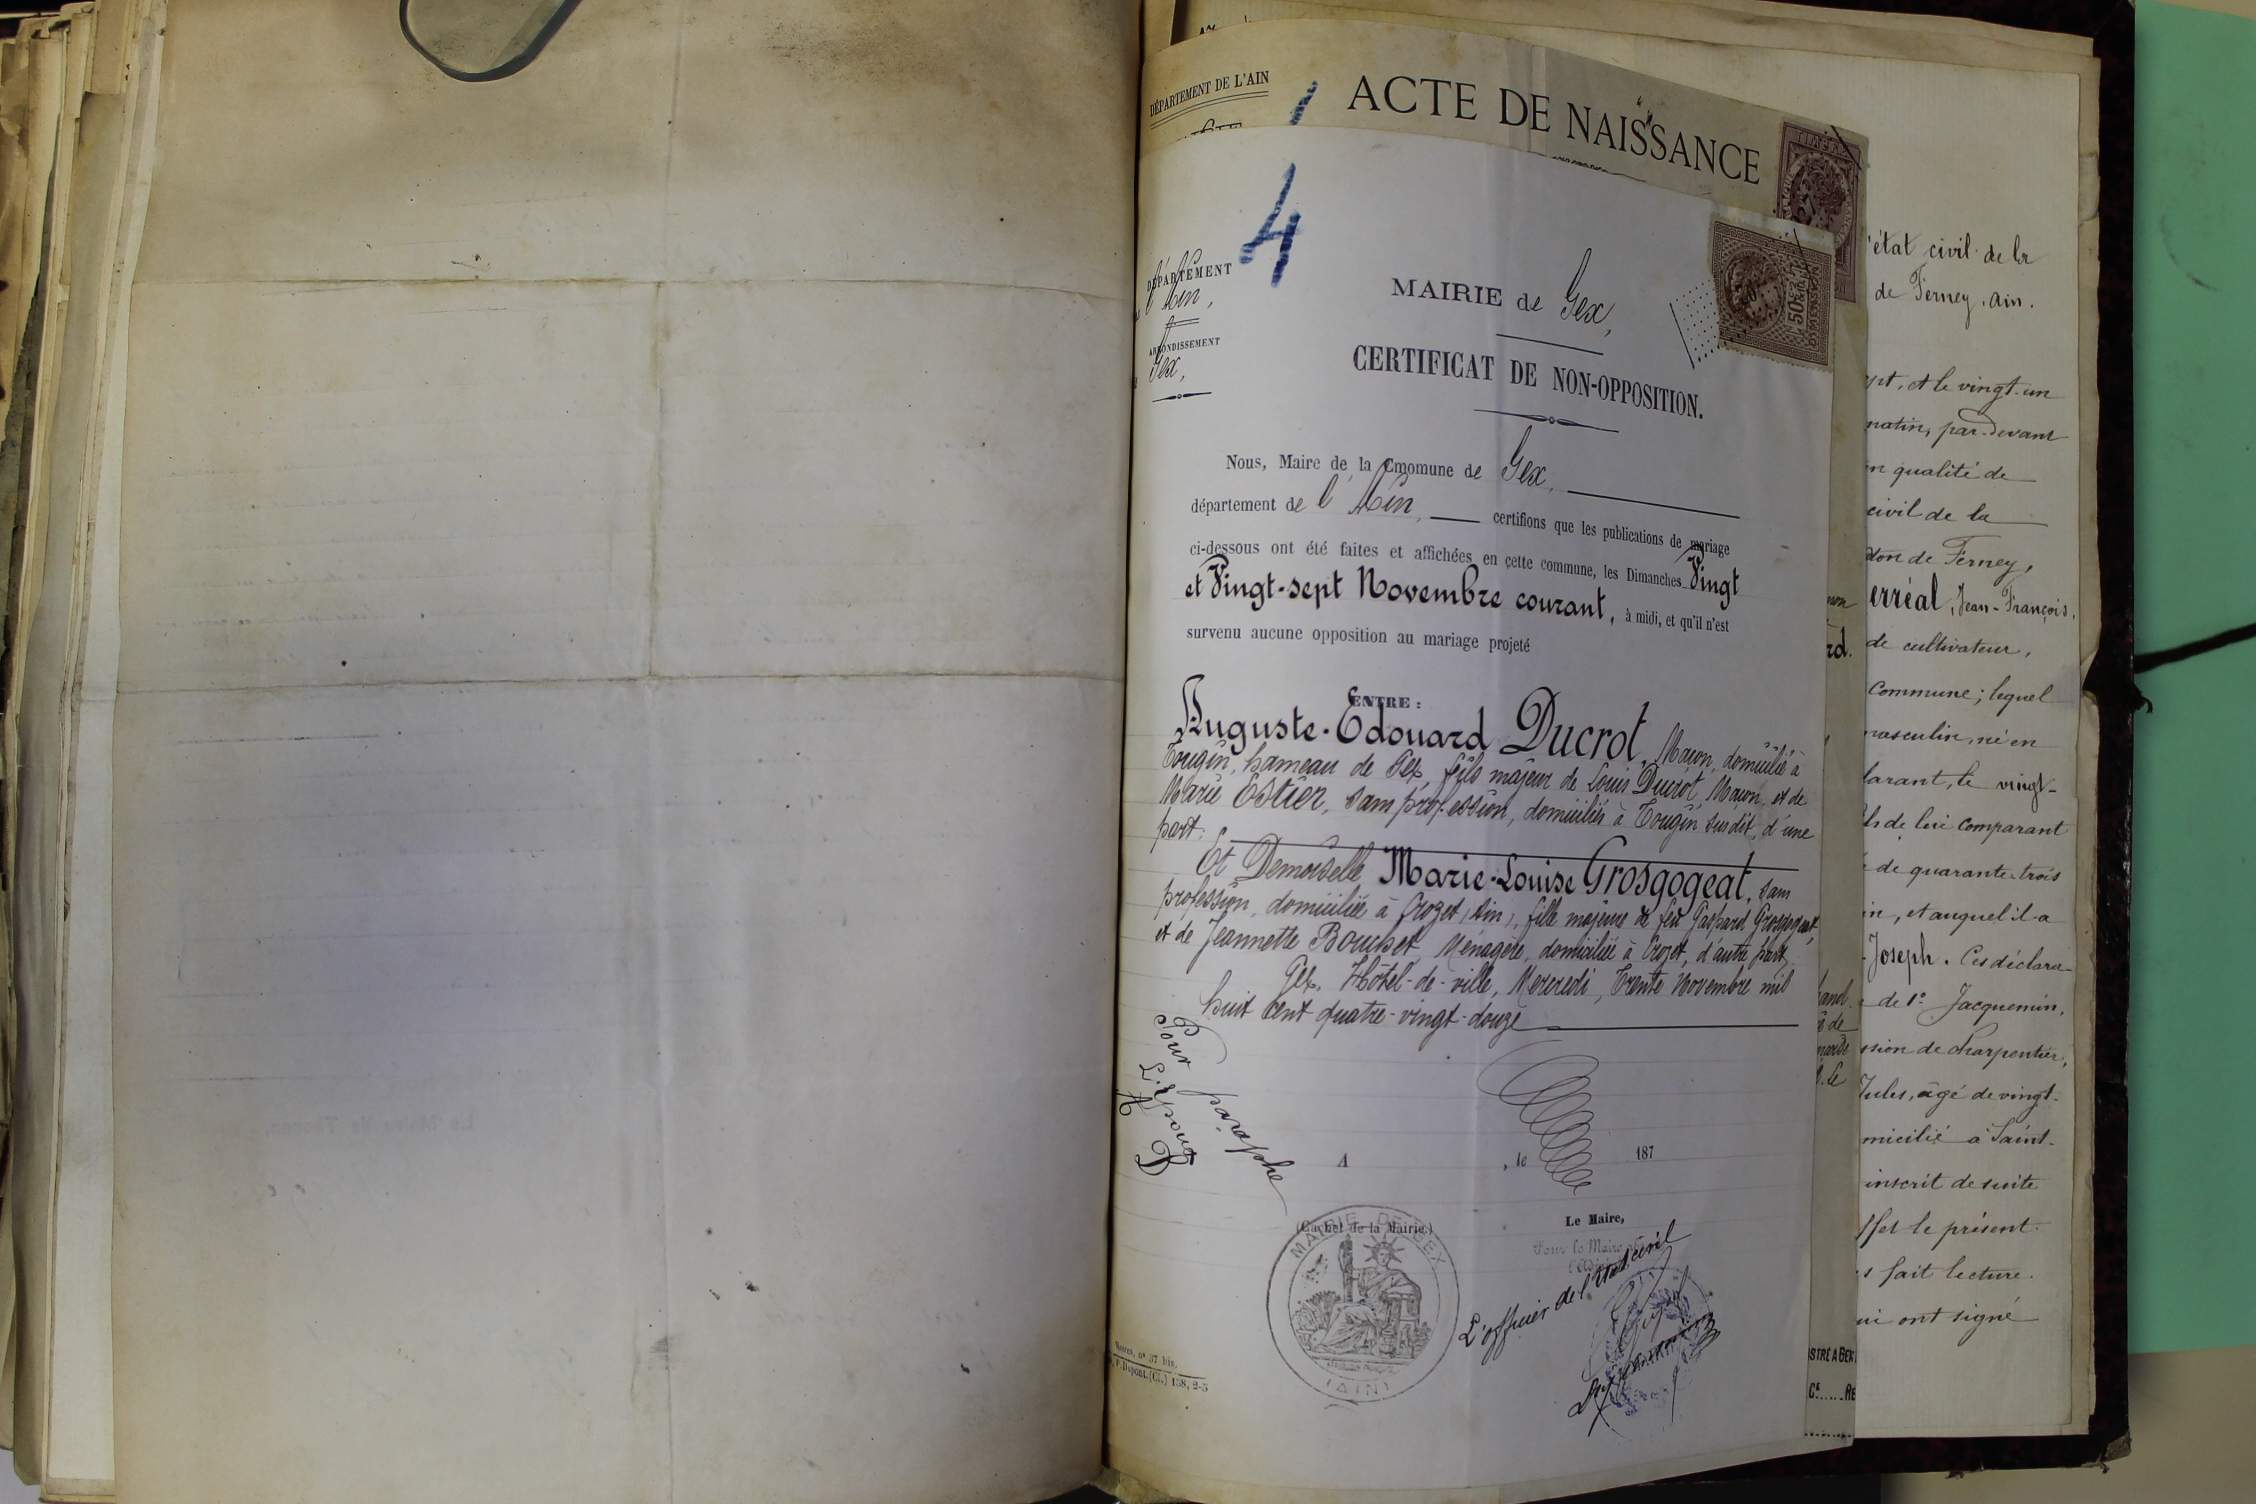 DÉPARTEMENT DE L'AIN
ACTE DE NAISSANCE
4
DÉPARTEMENT
l'Ain,
ARRONDISSEMENT
Gex,
MAIRIE de Gex,
CERTIFICAT DE NON-OPPOSITION.
Nous, Maire de la Cmomune de Gex,
département de l'Ain, certifions que les publications de mariage
ci-dessous ont été faites et affichées en cette commune, les Dimanches Vingt
et Vingt-sept Novembre courant, à midi, et qu'il n'est
survenu aucune opposition au mariage projeté
ENTRE :
Auguste-Edouard Ducrot, Maçon, domicilié à
Tougin, hameau de Gex, fils majeur de Louis Ducrot, Maçon, et de
Marie Estier, sans profession, domiciliés à Tougin susdit, d'une
part.
Et Demoiselle Marie-Louise Grosgogeat, sans
profession, domiciliée à Crozet (Ain), fille majeure de feu Gaspard Grosgogeat,
et de Jeannette Bousset, Ménagère, domiciliée à Crozet, d'autre part.
Gex, Hôtel-de-ville, Mercredi, Trente Novembre mil
huit cent quatre-vingt-douze
Pour paraphe
L'époux
A D
A , le 187
(Cachet de la Mairie.)
MAIRIE DE GEX
(AIN)
Le Maire,
Pour le Maire
L'officier de l'Etat civil
nº 37 bis.
P. Dupont. (Cl.) 158, 2-5
50c
l'état civil de la
de Ferney, Ain.
et le vingt-un
matin, par-devant
en qualité de
civil de la
de Ferney,
Jean-François,
de cultivateur,
commune; lequel
masculin, né en
le vingt-
de lui comparant
de quarante-trois
et auquel il a
Joseph. Ces déclara-
de 1º Jacquemin,
de charpentier,
Jules, âgé de vingt-
domicilié à Saint-
inscrit de suite
le présent
fait lecture
qui ont signé